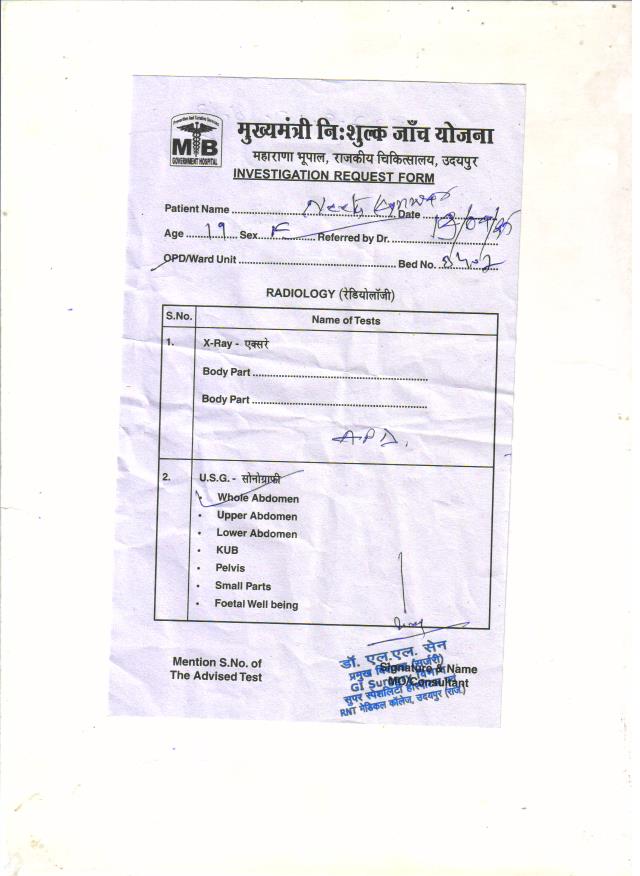 Preventive And Curative Services
MB
GOVERNMENT HOSPITAL
मुख्यमंत्री निःशुल्क जाँच योजना
महाराणा भूपाल, राजकीय चिकित्सालय, उदयपुर
INVESTIGATION REQUEST FORM
Patient Name Neetu Kunwar Date
Age 19 Sex F Referred by Dr.
OPD/Ward Unit Bed No.
RADIOLOGY (रेडियोलॉजी)
S.No. Name of Tests
1. X-Ray - एक्सरे
Body Part
Body Part
APD.
2. U.S.G. - सोनोग्राफी
• Whole Abdomen
• Upper Abdomen
• Lower Abdomen
• KUB
• Pelvis
• Small Parts
• Foetal Well being
Mention S.No. of
The Advised Test
डॉ. एल.एल. सेन
Signature & Name
MO/Consultant
प्रमुख (सर्जरी)
GI
सुपर स्पेशलिटी
RNT मेडिकल कॉलेज, उदयपुर (राज.)